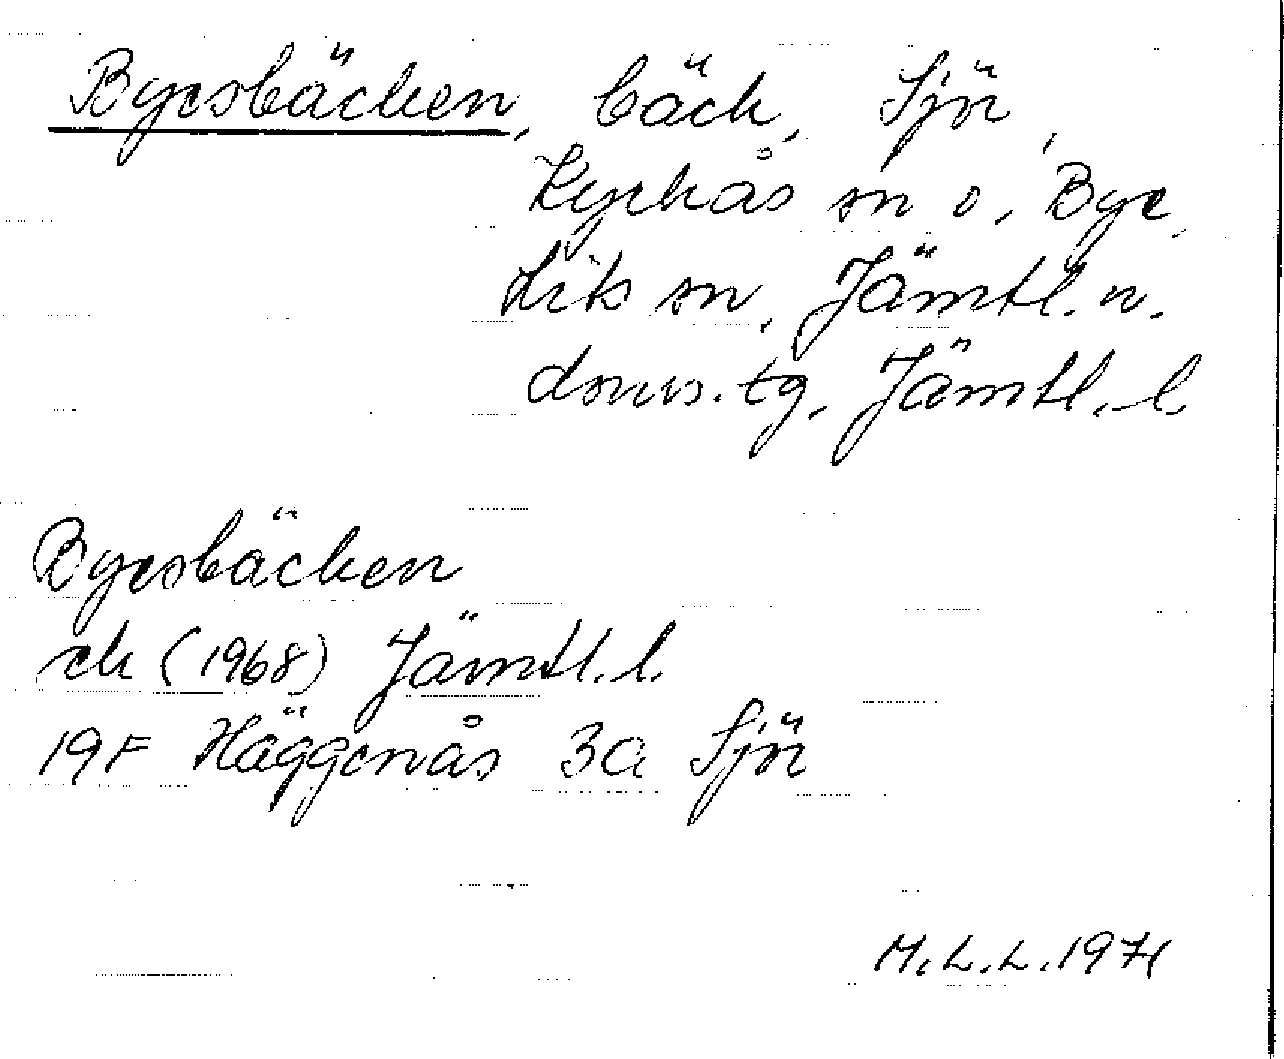 Byesbäcken, bäck, Sjör,
Kyrkås sn o. Bye,
Lits sn, Jämtl. n.
doms.tg, Jämtl. l.
Byesbäcken
ek (1968) Jämtl. l.
19F Häggenås 3a Sjör
M.L.L. 1971